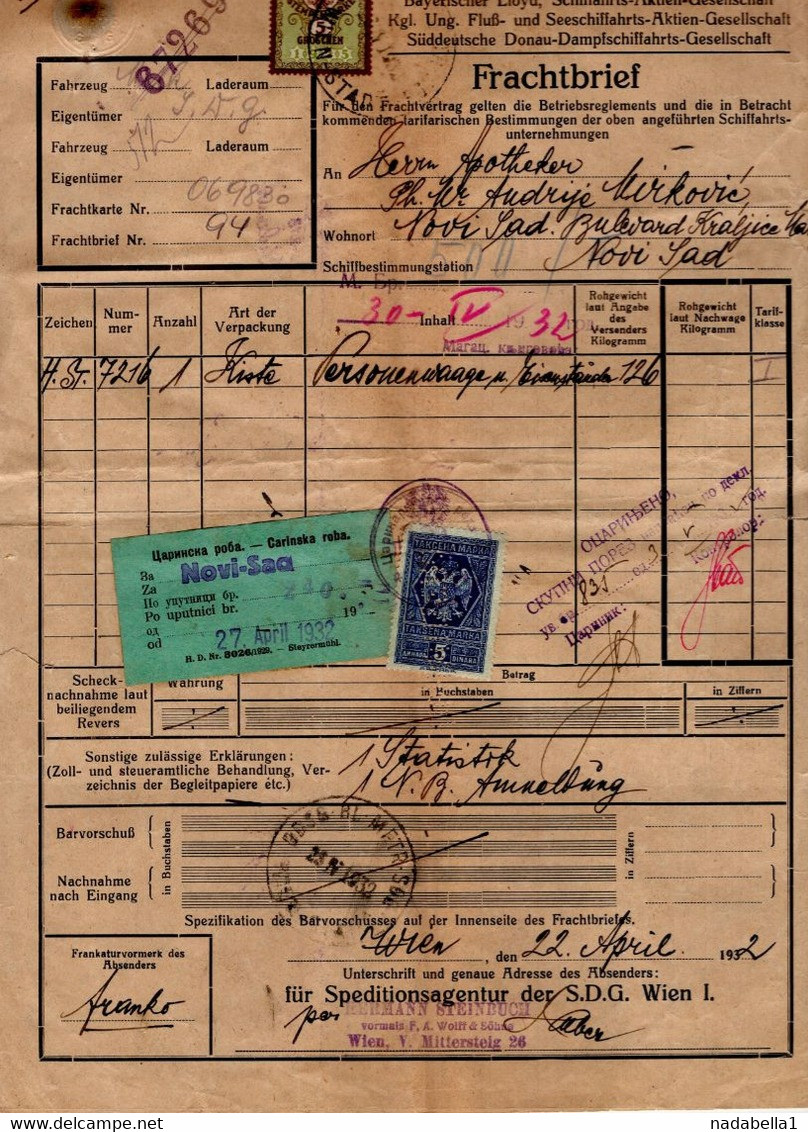 Bayerischer Lloyd, Schiffahrts-Aktien-Gesellschaft
Kgl. Ung. Fluß- und Seeschiffahrts-Aktien-Gesellschaft
Süddeutsche Donau-Dampfschiffahrts-Gesellschaft
5
GROSCHEN
Frachtbrief
Für den Frachtvertrag gelten die Betriebsreglements und die in Betracht
kommenden tarifarischen Bestimmungen der oben angeführten Schiffahrts-
unternehmungen
Fahrzeug Laderaum
Eigentümer S. D. G.
Fahrzeug Laderaum
Eigentümer
Frachtkarte Nr. 069830
Frachtbrief Nr. 94
An Herrn Apotheker
Ph. Mr. Andrije Mirković,
Wohnort Novi Sad. Bulevard Kraljice
Schiffbestimmungstation Novi Sad
М. Бр.
30- IV 1932
Zeichen
Num-
mer
Anzahl
Art der
Verpackung
Inhalt
Rohgewicht
laut Angabe
des
Versenders
Kilogramm
Rohgewicht
laut Nachwage
Kilogramm
Tarif-
klasse
H. St. 7216 1 Kiste Personenwaage u. 126 I
Царинска роба. — Carinska roba.
За
Za
Novi-Sad
По упутници бр.
Po uputnici br.
од
od
27. April 1932
H. D. Nr. 3026/1929. — Steyrermühl.
ТАКСЕНА МАРКА
TAKSENA MARKA
ДИНАРА 5 DINARA
ОЦАРИЊЕНО,
СКУПНИ ПОРЕЗ
ув. бр. 835 од 3 V год.
Цариник:
Контролор:
Scheck-
nachnahme laut
beiliegendem
Revers
Währung
Betrag
in Buchstaben
in Ziffern
Sonstige zulässige Erklärungen:
(Zoll- und steueramtliche Behandlung, Ver-
zeichnis der Begleitpapiere etc.)
1 Statistik
1 N. B. Anmeldung
Barvorschuß
Nachnahme
nach Eingang
in Buchstaben
in Ziffern
23 IV 1932
Spezifikation des Barvorschusses auf der Innenseite des Frachtbriefes.
Wien, den 22. April 1932
Frankaturvormerk des
Absenders
franko
Unterschrift und genaue Adresse des Absenders:
für Speditionsagentur der S.D.G. Wien I.
per
HERMANN STEINBUCH
vormals F. A. Wolff & Söhne
Wien, V. Mittersteig 26
nadabella1